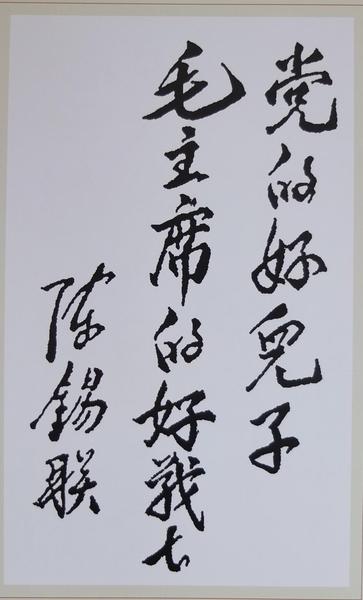 党的好兒子
毛主席的好战士
陈锡联